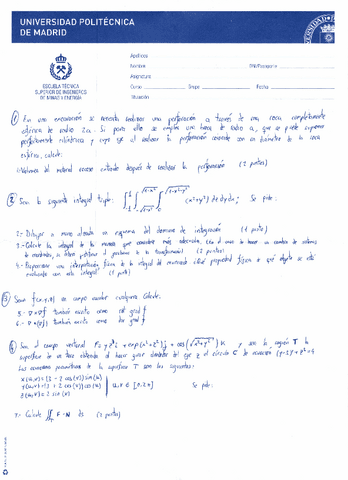 UNIVERSIDAD POLITÉCNICA
DE MADRID
ESCUELA TÉCNICA
SUPERIOR DE INGENIEROS
DE MINAS Y ENERGÍA
Apellidos
Nombre DNI/Pasaporte
Asignatura
Curso Grupo Fecha
Titulación
① En una se necesita realizar una perforación a través de una roca completamente
esférica de radio 2a. Si para ello se emplea una broca de radio a, que se puede suponer
perfectamente cilíndrica y cuyo eje al realizar la perforación coincide con un diámetro de la roca
esférica, calcule:
1- Volumen del material rocoso extraído después de realizar la perforación (2 puntos)
② Sea la siguiente integral triple: (x²+y²) dz dy dx; Se pide:
2.- Dibujar a mano alzada un esquema del dominio de integración (1 punto)
3.- Calcule la integral de la manera que considere más adecuada. (en el caso de hacer un cambio de sistema
de coordenadas, se deberá justificar el de la transformación) (2 puntos)
4.- Proporcione una interpretación física de la integral del enunciado ¿Qué propiedad física o qué objeto se está
evaluando con esta integral? (1 punto)
③ Sean f(x,y,z) un campo escalar cualquiera. Calcule:
5.- ∇×∇f también escrito como rot grad f
6.- ∇•(∇f) también escrito como grad f
④ Sea el campo vectorial y sea, según T la
superficie de un toro obtenida al hacer girar alrededor del eje z el círculo C de ecuación
Las ecuaciones paramétricas de la superficie T son las siguientes:
x(u,v)=(3+2 cos(v)) sin(u)
y(u,v)=(3+2 cos(v)) cos(u) u,v ∈ [0,2π] Se pide:
z(u,v)=2 sin(v)
7.- Calcule ∬ F·N ds (2 puntos)